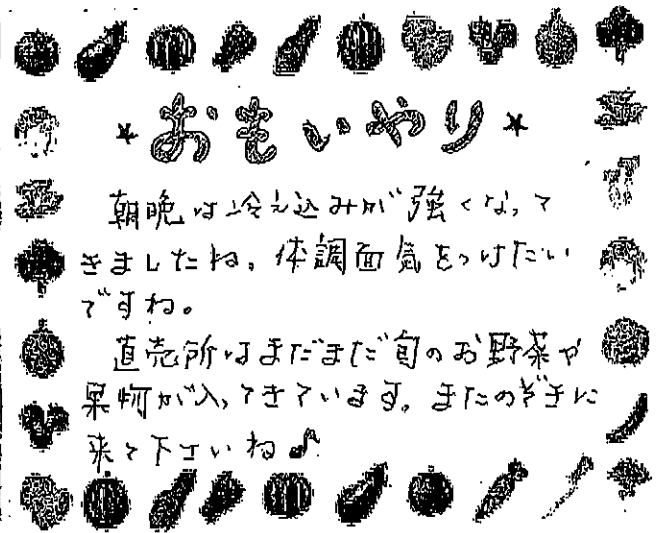 *おもいやり*
朝晩は冷え込みが強くなって
きましたね。体調面気をつけたい
ですね。
直売所はまだまだ旬のお野菜や
果物が入ってきています。またのぞきに
来て下さいね♪